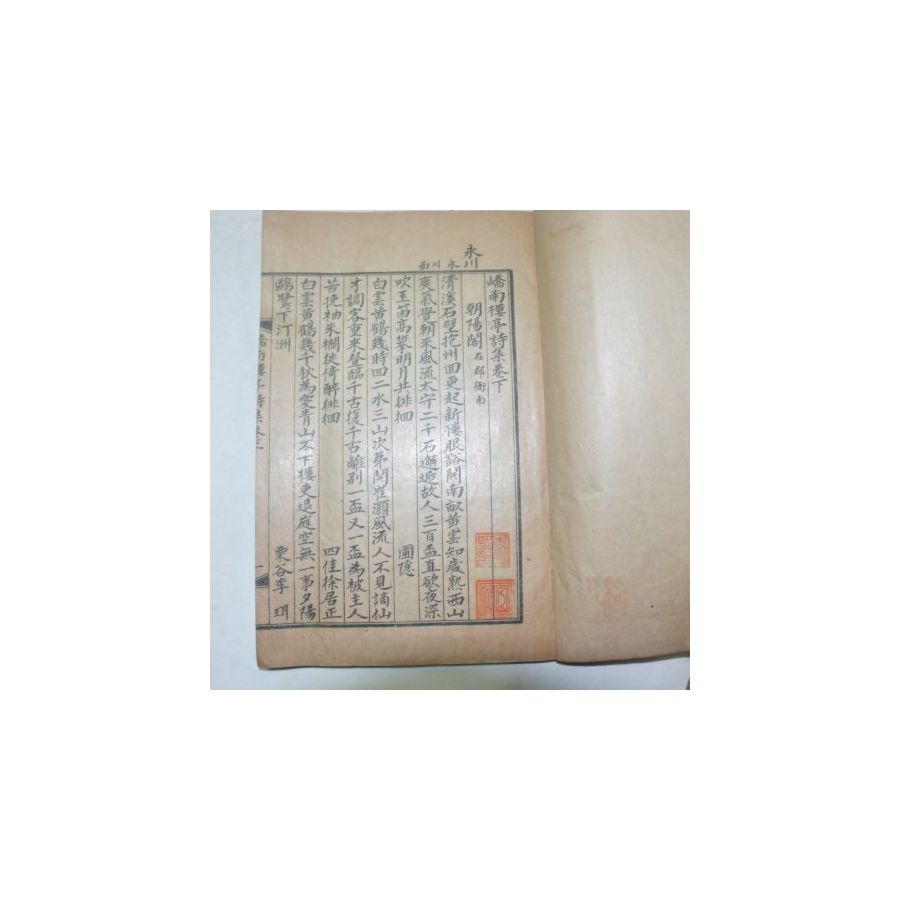 永川
永川面
嶠南樓亭詩集卷下
朝陽閣 在郡衙南
淸溪石壁抱州回更起新樓眼豁開南畝黃雲知歲熟西山
爽氣覺朝來風流太守二千石邂逅故人三百盃直欲夜深
吹玉笛高攀明月共徘徊 圃隱
白雲黃鶴幾時回二水三山次第開崔灝風流人不見謫仙
才調客重來登臨千古復千古離別一盃又一盃爲被主人
苦挽袖朱欄徙倚醉徘徊 四佳徐居正
白雲黃鶴幾千秋爲愛靑山不下樓吏退庭空無一事夕陽
鷗鷺下汀洲 栗谷李珥